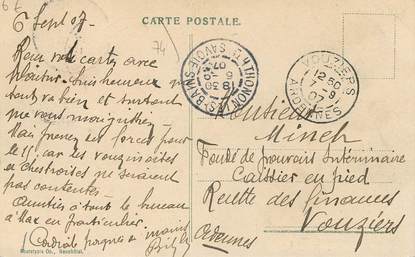 6 Sept 07.
CARTE POSTALE.
74
Reçu votre carte avec
plaisir. Suis heureux que
tout va bien et surtout
que vous
Mais prenez des forces pour
le 11 car les vouzinoises
et Chestroises ne seraient
pas contentes.
Amitiés à tout le bureau
à Max en particulier
Cordiale poignée de mains
THONON-LES-BAINS
HTE SAVOIE
18 30
6
07
VOUZIERS
12 50
7 - 9
07
ARDENNES
Monsieur
Minch
Fondé de pouvoirs Intérimaire
Caissier en pied
Recette des finances
Vouziers
Ardennes
Phototypie Co., Neuchâtel.